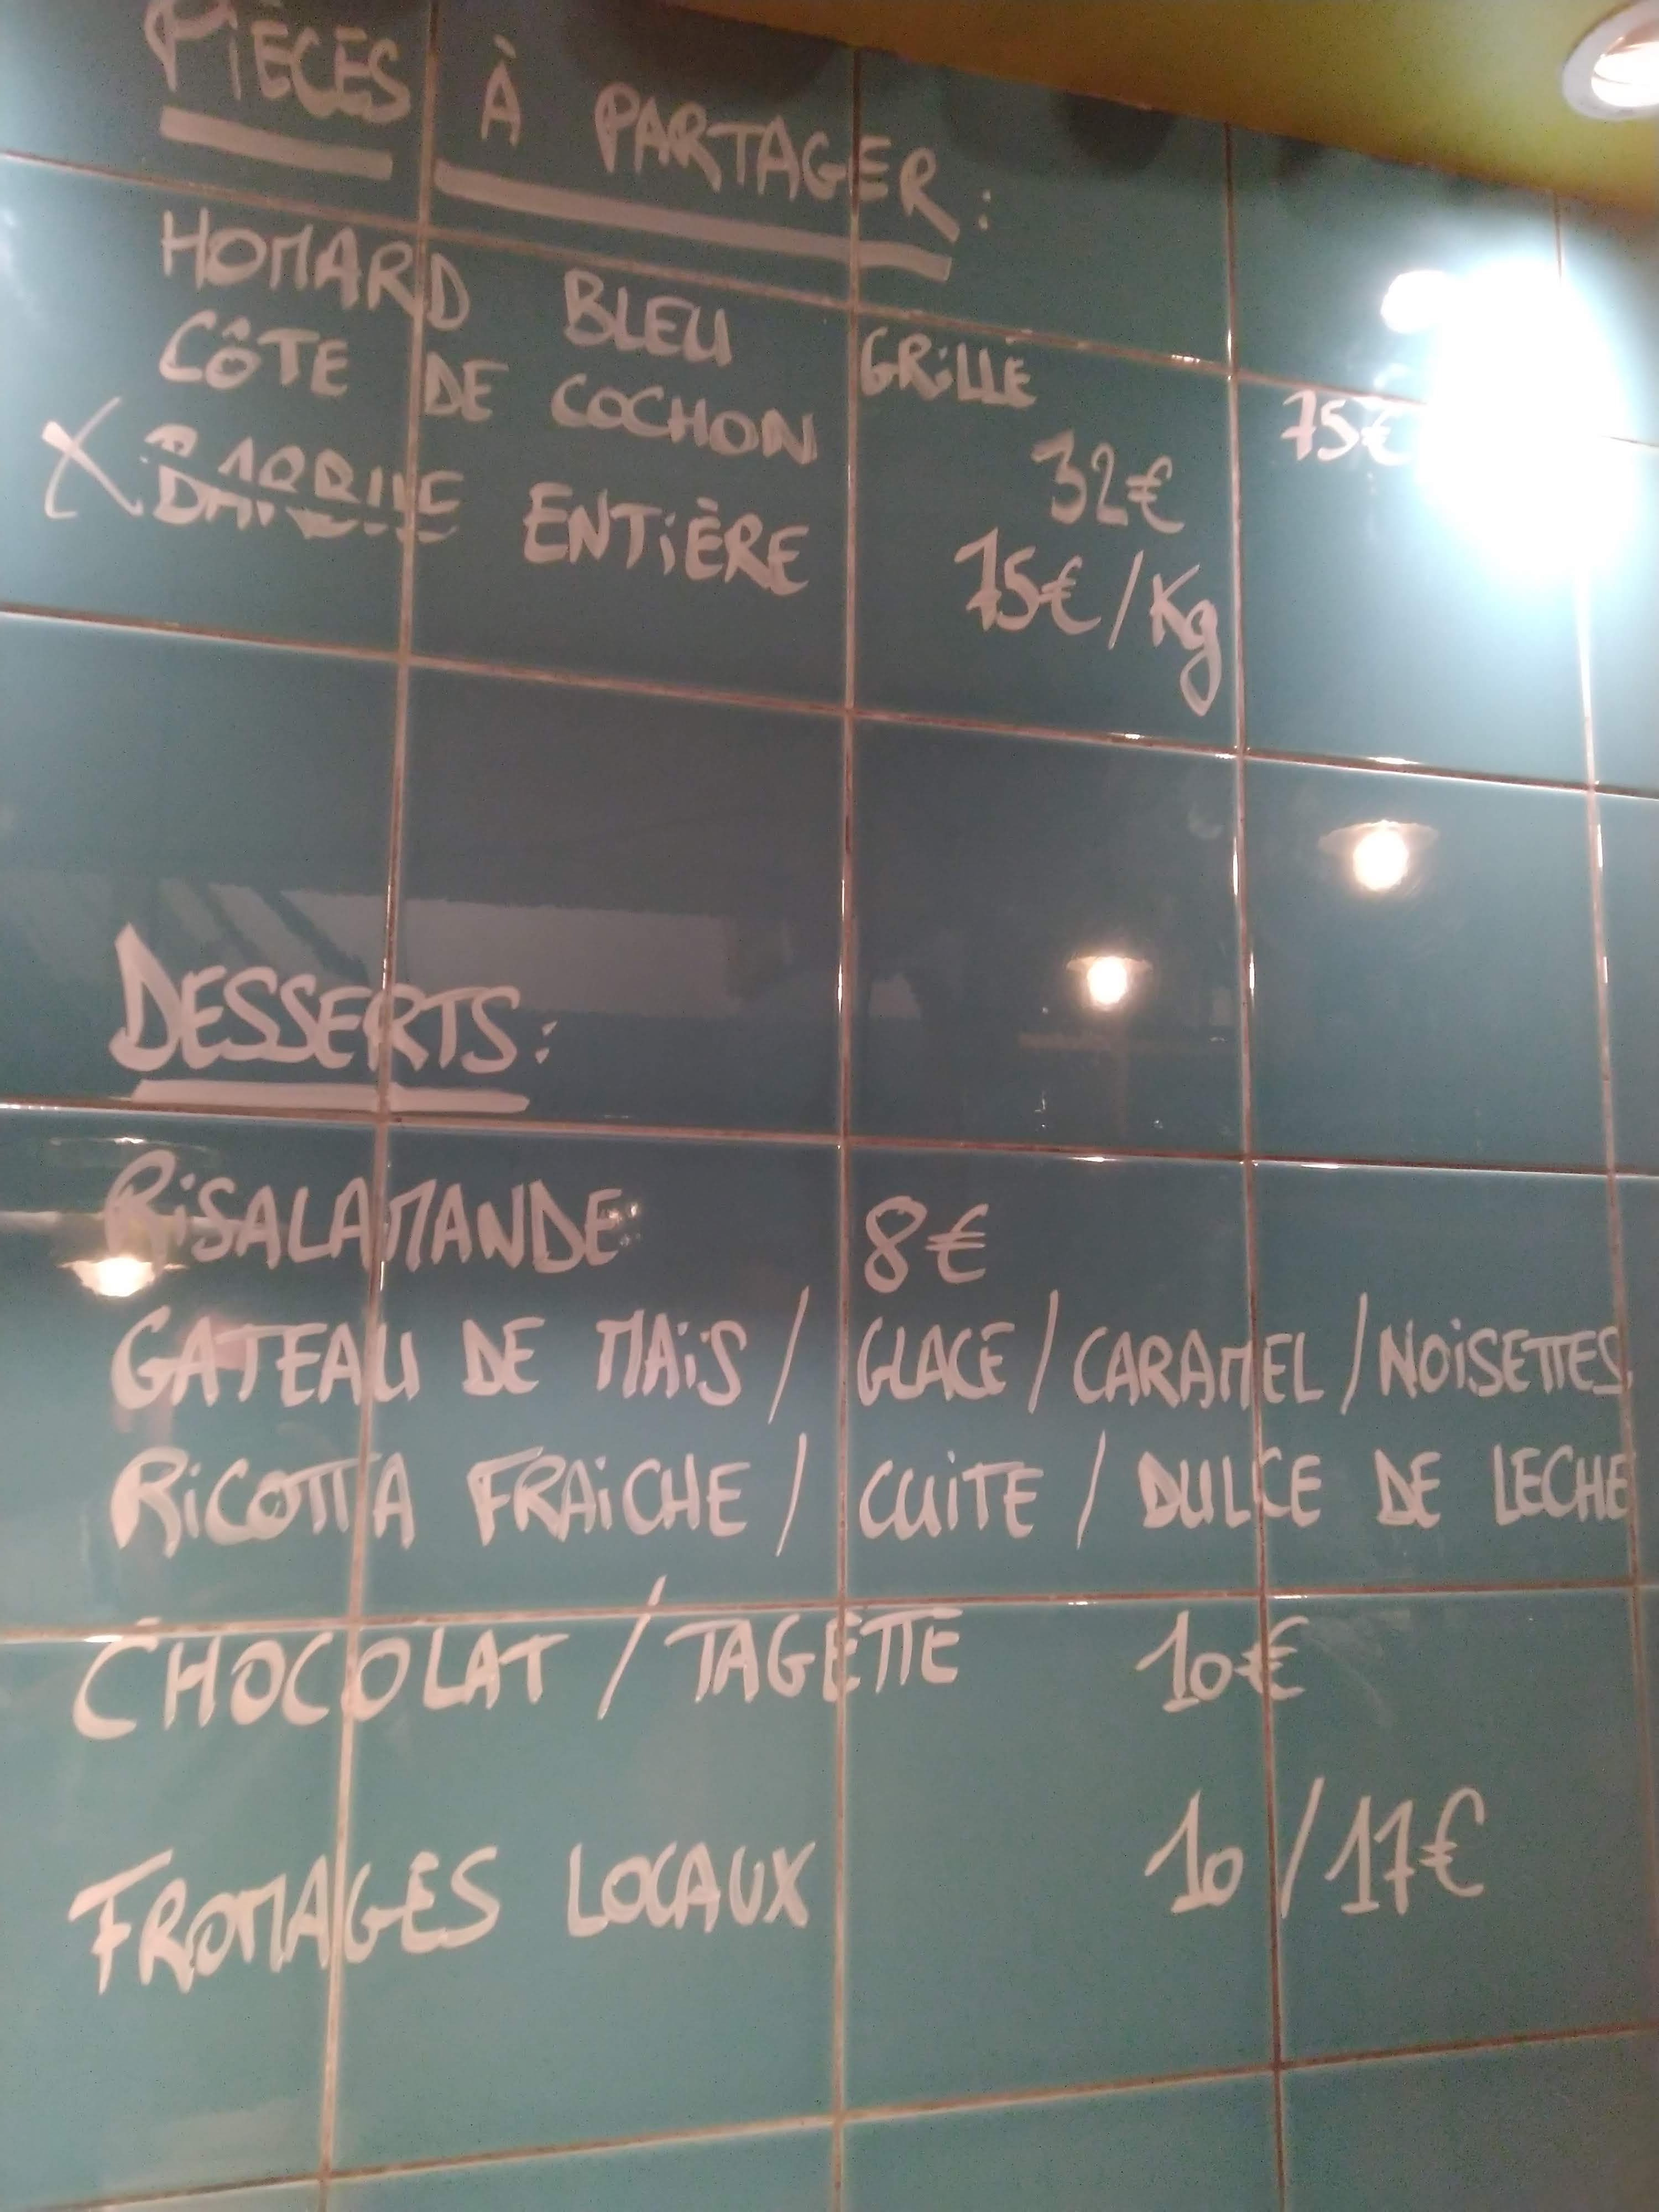 PIÈCES À PARTAGER :
HOMARD BLEU GRILLÉ 75€
CÔTE DE COCHON 32€
X BARBUE ENTIÈRE 75€/Kg
DESSERTS :
RISALAMANDE 8€
GATEAU DE MAÏS / GLACE / CARAMEL / NOISETTES
RICOTTA FRAICHE / CUITE / DULCE DE LECHE
CHOCOLAT / TAGETTE 10€
FROMAGES LOCAUX 10/17€